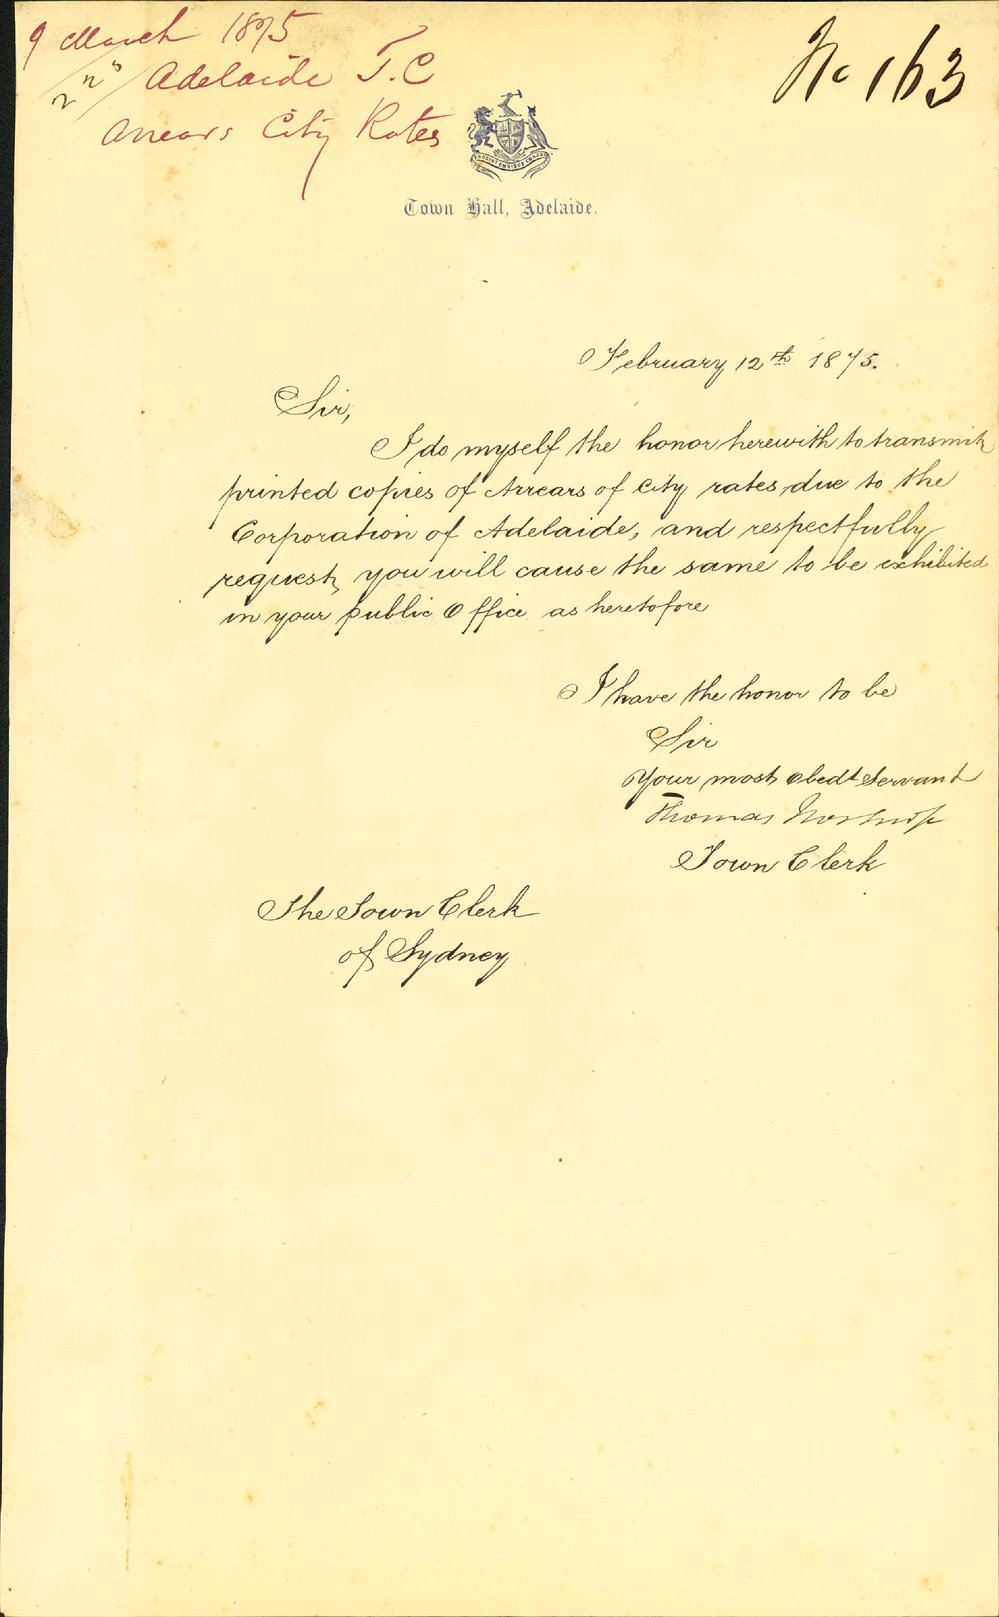 9 March 1875
Adelaide T.C
Arrears City Rates
No 163
Town Hall, Adelaide.
February 12th 1875.
Sir,
I do myself the honor herewith to transmit
printed copies of Arrears of City rates, due to the
Corporation of Adelaide, and respectfully
request, you will cause the same to be exhibited
in your public Office as heretofore
I have the honor to be
Sir
Your most obedt Servant
Thomas Worsnop
Town Clerk
The Town Clerk
of Sydney